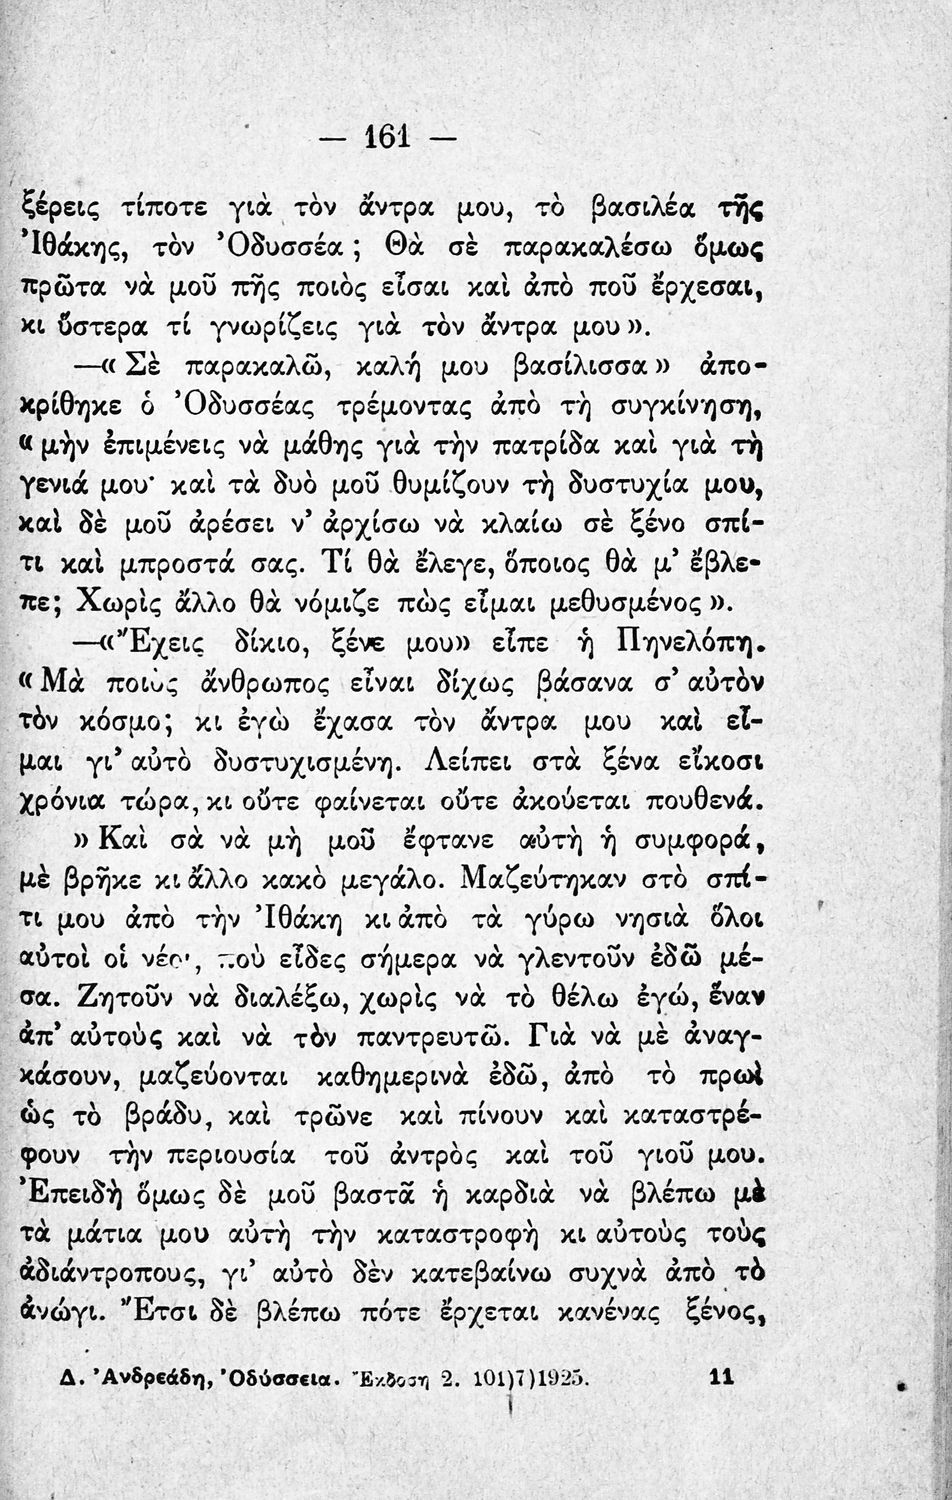 — 161 —
ξέρεις τίποτε γιὰ τὸν ἄντρα μου, τὸ βασιλέα τῆς
Ἰθάκης, τὸν Ὀδυσσέα ; Θὰ σὲ παρακαλέσω ὅμως
πρῶτα νὰ μοῦ πῆς ποιὸς εἶσαι καὶ ἀπὸ ποῦ ἔρχεσαι,
κι ὕστερα τί γνωρίζεις γιὰ τὸν ἄντρα μου ».
—« Σὲ παρακαλῶ, καλή μου βασίλισσα » ἀπο-
κρίθηκε ὁ Ὀδυσσέας τρέμοντας ἀπὸ τὴ συγκίνηση,
« μὴν ἐπιμένεις νὰ μάθης γιὰ τὴν πατρίδα καὶ γιὰ τὴ
γενιά μου· καὶ τὰ δυὸ μοῦ θυμίζουν τὴ δυστυχία μου,
καὶ δὲ μοῦ ἀρέσει ν’ ἀρχίσω νὰ κλαίω σὲ ξένο σπί-
τι καὶ μπροστά σας. Τί θὰ ἔλεγε, ὅποιος θὰ μ’ ἔβλε-
πε; Χωρὶς ἄλλο θὰ νόμιζε πὼς εἶμαι μεθυσμένος ».
—«Ἔχεις δίκιο, ξένε μου» εἶπε ἡ Πηνελόπη.
« Μὰ ποιὸς ἄνθρωπος εἶναι δίχως βάσανα σ’ αὐτὸν
τὸν κόσμο; κι ἐγὼ ἔχασα τὸν ἄντρα μου καὶ εἶ-
μαι γι’ αὐτὸ δυστυχισμένη. Λείπει στὰ ξένα εἴκοσι
χρόνια τώρα, κι οὔτε φαίνεται οὔτε ἀκούεται πουθενά.
» Καὶ σὰ νὰ μὴ μοῦ ἔφτανε αὐτὴ ἡ συμφορά,
μὲ βρῆκε κι ἄλλο κακὸ μεγάλο. Μαζεύτηκαν στὸ σπί-
τι μου ἀπὸ τὴν Ἰθάκη κι ἀπὸ τὰ γύρω νησιὰ ὅλοι
αὐτοὶ οἱ νέοι, ποὺ εἶδες σήμερα νὰ γλεντοῦν ἐδῶ μέ-
σα. Ζητοῦν νὰ διαλέξω, χωρὶς νὰ τὸ θέλω ἐγώ, ἕναν
ἀπ’ αὐτοὺς καὶ νὰ τὸν παντρευτῶ. Γιὰ νὰ μὲ ἀναγ-
κάσουν, μαζεύονται καθημερινὰ ἐδῶ, ἀπὸ τὸ πρωὶ
ὡς τὸ βράδυ, καὶ τρῶνε καὶ πίνουν καὶ καταστρέ-
φουν τὴν περιουσία τοῦ ἀντρὸς καὶ τοῦ γιοῦ μου.
Ἐπειδὴ ὅμως δὲ μοῦ βαστᾶ ἡ καρδιὰ νὰ βλέπω μὲ
τὰ μάτια μου αὐτὴ τὴν καταστροφὴ κι αὐτοὺς τοὺς
ἀδιάντροπους, γι’ αὐτὸ δὲν κατεβαίνω συχνὰ ἀπὸ τὸ
ἀνώγι. Ἔτσι δὲ βλέπω πότε ἔρχεται κανένας ξένος,
Δ. Ἀνδρεάδη, Ὀδύσσεια. Ἔκδοση 2. 101)7)1925. 11